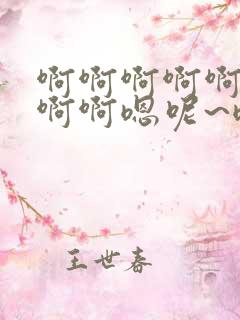 啊啊啊啊啊
啊啊嗯呢~
王世春